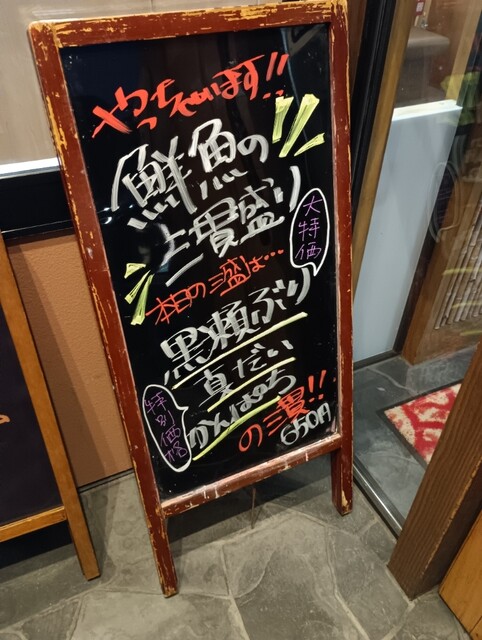 やっちゃいます!!
鮮魚の
三貫盛り
大特価
本日の三盛は…
黒瀬ぶり
真だい
かんぱち
の三貫!!
特別価格
650円